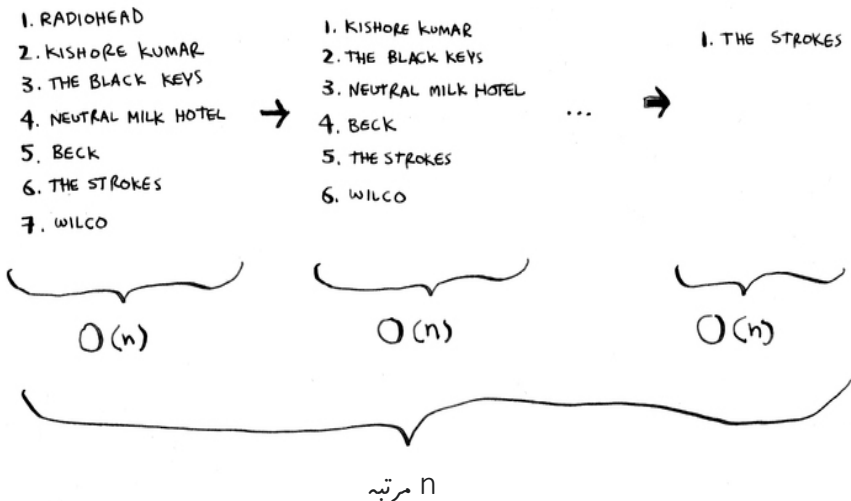 1. RADIOHEAD
2. KISHORE KUMAR
3. THE BLACK KEYS
4. NEUTRAL MILK HOTEL
5. BECK
6. THE STROKES
7. WILCO
1. KISHORE KUMAR
2. THE BLACK KEYS
3. NEUTRAL MILK HOTEL
4. BECK
5. THE STROKES
6. WILCO
...
1. THE STROKES
O(n)
O(n)
O(n)
n مرتبہ